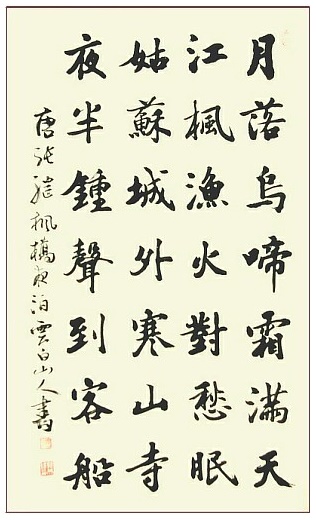 月落烏啼霜滿天
江楓漁火對愁眠
姑蘇城外寒山寺
夜半鍾聲到客船
唐張繼楓橋夜泊雲白山人書